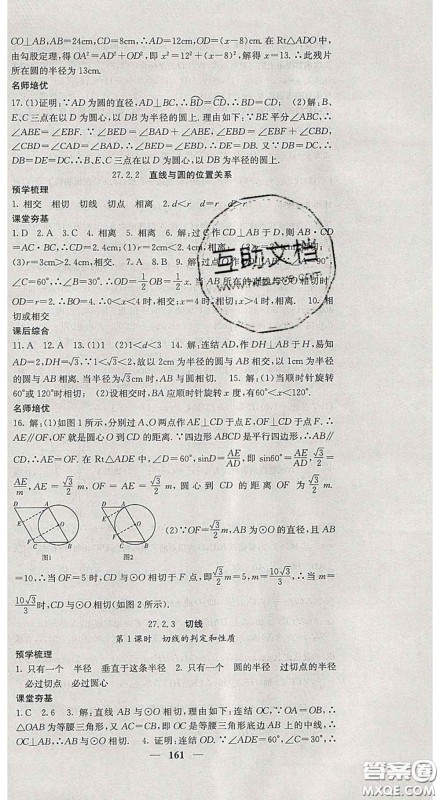 CO⊥AB, AB=24cm, CD=8cm, ∴AD=12cm, OD=(x-8)cm. 在Rt△ADO中,
由勾股定理, 得OA²=AD²+OD², 即x²=12²+(x-8)², 解得x=13. ∴此残片
所在圆的半径为13cm.
名师培优
17. (1)证明: ∵AD为圆的直径, AD⊥BC, ∴BD=CD. ∴BD=CD. (2)解:
B、E、C三点在以D为圆心, 以DB为半径的圆上. 理由如下: ∵BE平分∠ABC, ∴
∠ABE=∠EBF. ∵∠EBD=∠EBF+∠FBD, ∠BED=∠BAD+∠ABE, ∠FBD=∠CAD
=∠BAD, ∴∠EBD=∠BED. ∴BD=DE. 又∵BD=DC, ∴BD=DE=DC. ∴
B、E、C三点在以D为圆心, 以DB为半径的圆上.
27.2.2 直线与圆的位置关系
预学梳理
1. 相交 相切 切线 切点 相离 2. d<r d=r d>r
课堂夯基
1. D 2. A 3. 相离 4. 相交
=AC·BC, ∴CD=2.4cm; (1)r=2cm<2.4cm,
(3)r=3cm>2.4cm, 相交. 7. B 8. A 9. 解: 过点O作OD⊥AB于点D,
∠C=60°, ∴∠B=30°, ∴OD=½OB=½x. 当AB所在的直线与⊙O相切时
OD=r=2. ∴OB=4, ∴0<x<4时, 相交; x=4时, 相切; x>4时, 相离. 10. 相
切或相交
课后综合
11. A 12. A 13. (1)1 (2)1<d<3 14. 解: 连结AD, 作DH⊥AB于H, 易知
AD=2, DH=√3, ∵1<√3<2, ∴以1cm为半径的圆与AB相离, 以2cm为半径
的圆与AB相交. 当半径为√3cm时, AB与圆相切. 15. 解: (1)当顺时针旋转
60°或120°时相切; (2)设相交时, BA应顺时针旋转x度, 有60°<x<120°.
名师培优
16. 解: (1)如图1所示, 分别过A、O两点作AE⊥CD, OF⊥CD, 垂足为E、F, ∴
AE∥OF, OF就是圆心O到CD的距离. ∵四边形ABCD是平行四边形, ∴
AB∥CD, ∴AE=OF. 在Rt△ADE中, ∠D=60°, sinD=AE/AD, sin60°=AE/AD, √3/2=
AE/m, AE=√3/2 m, OF=AE=√3/2 m, 圆心到CD的距离OF为√3/2 m.
(2)∵OF=√3/2 m, AB为⊙O的直径, 且AB
图1 图2
=10, ∴当OF=5时, CD与⊙O相切于F点, 即√3/2 m=5, m=10√3/3, ∴当m=
10√3/3时, CD与⊙O相切(如图2所示).
27.2.3 切线
第1课时 切线的判定和性质
预学梳理
1. 只有一个 半径 垂直于这条半径 2. 只有一个 圆的半径 过切点的半径
必过切点 必过圆心
课堂夯基
1. C 2. 6 3. 解: 直线AB与⊙O相切. 理由如下: 连结OC, ∵OA=OB, ∴
△OAB为等腰三角形, 又∵CA=CB, ∴OC是等腰三角形底边AB上的中线, ∴
OC⊥AB, ∴AB与⊙O相切. 4. 证明: 连结OA、OD, ∵∠ADE=60°, ∠C=30°,
161
互助文档
答案圈
MXQE.COM